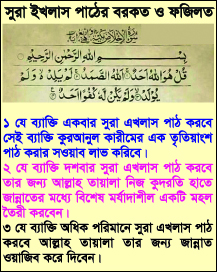 সুরা ইখলাস পাঠের বরকত ও ফজিলত
سورة الإخلاص
بِسْمِ اللهِ الرَّحْمٰنِ الرَّحِيْمِ
قُلْ هُوَ اللهُ اَحَدٌ اَللهُ الصَّمَدُ لَمْ يَلِدْ وَلَمْ
يُوْلَدْ وَلَمْ يَكُنْ لَّهٗ كُفُوًا اَحَدٌ
১ যে ব্যাক্তি একবার সুরা এখলাস পাঠ করবে
সেই ব্যাক্তি কুরআনুল কারীমের এক তৃতিয়াংশ
পাঠ করার সওয়াব লাভ করিবে।
২ যে ব্যাক্তি দশবার সুরা এখলাস পাঠ করবে
তার জন্য আল্লাহ তায়ালা নিজ কুদরতি হাতে
জান্নাতের মধ্যে বিশেষ মর্যাদাশীল একটি মহল
তৈরী করবেন।
৩ যে ব্যাক্তি অধিক পরিমানে সুরা এখলাস পাঠ
করবে আল্লাহ তায়ালা তার জন্য জান্নাত
ওয়াজিব করে দিবেন।